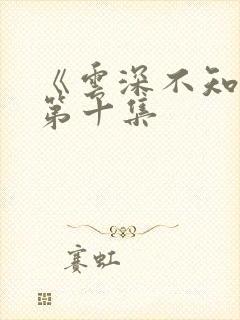 《雲深不知
第十集
赛虹